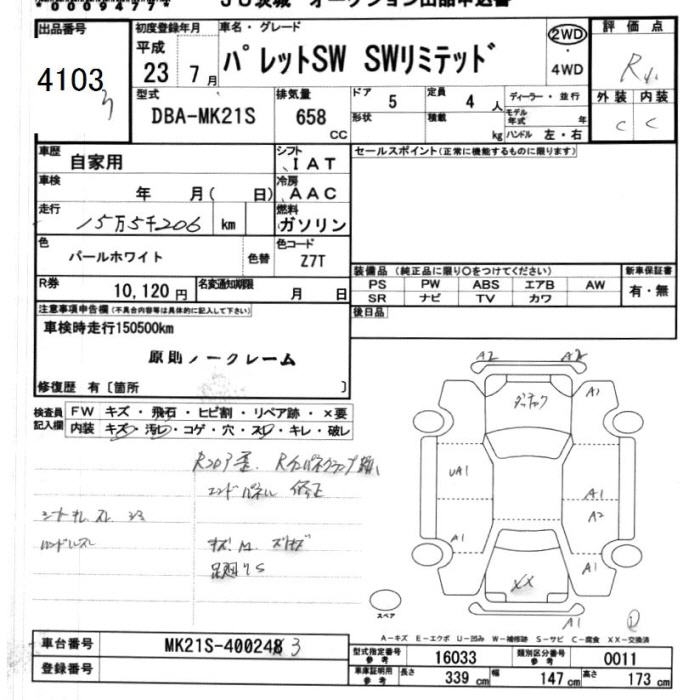 出品番号
4103
初度登録年月
平成
23 7月
車名・グレード
パレットSW SWリミテッド
2WD
・
4WD
評価点
R
外装 内装
C C
型式
DBA-MK21S
排気量
658
CC
ドア 5
定員 4 人
ディーラー・並行
形状
積載 kg
モデル年式 年
ハンドル 左・右
車歴
自家用
シフト
IAT
セールスポイント(正常に機能するものに限ります)
車検
年 月( 日)
冷房
AAC
走行
15万5千206 km
燃料
ガソリン
色
パールホワイト 色替
色コード
Z7T
R券
10,120 円
名変通知期限
月 日
装備品(純正品に限り○をつけてください)
PS PW ABS エアB AW
SR ナビ TV カワ
新車保証書
有・無
後日品
注意事項申告欄(不具合内容等は具体的に記入して下さい)
車検時走行150500km
原則ノークレーム
修復歴 有〔箇所 〕
検査員記入欄
FW キズ・飛石・ヒビ割・リペア跡・×要
内装 キズ・汚レ・コゲ・穴・スレ・キレ・破レ
エンドパネル 修正
A2 A2
A1
UA1
A1
A2
A1
A1
XX
A1
スペア
A-キズ E-エクボ U-凹み W-補修跡 S-サビ C-腐食 XX-交換済
車台番号
MK21S-400248 3
登録番号
型式指定番号 参考
16033
類別区分番号 参考
0011
車庫証明用 参考
長さ 339 cm
幅 147 cm
高さ 173 cm